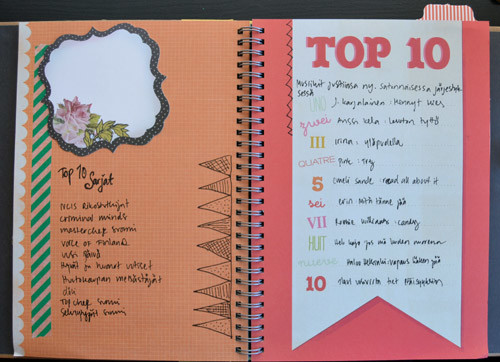 Top 10
Sarjat
NCIS Rikostutkijat
criminal minds
masterchef suomi
voice of Finland
uusi päivä
Hyvät ja huonot uutiset
Huutokaupan metsästäjät
olsi
Top chef suomi
Selviytyjät suomi
TOP 10
Musiikit justiinsa ny. satunnaisessa järjestyk-
sessä
UNO J. karjalainen: mennyt mies
zwei Anssi Kela: Laulun tyttö
III irina: yläpuolella
QUATRE pink: try
5 emeli sande: read all about it
sei erin: mitä tänne jää
VII Robbie williams: candy
HUIT
nueve haloo helsinki: vapaus käteen jää
10